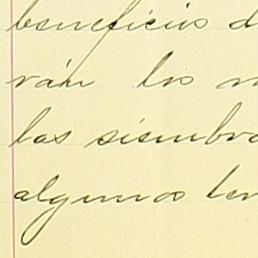 beneficios d
rán los n
las siembra
algunos ter